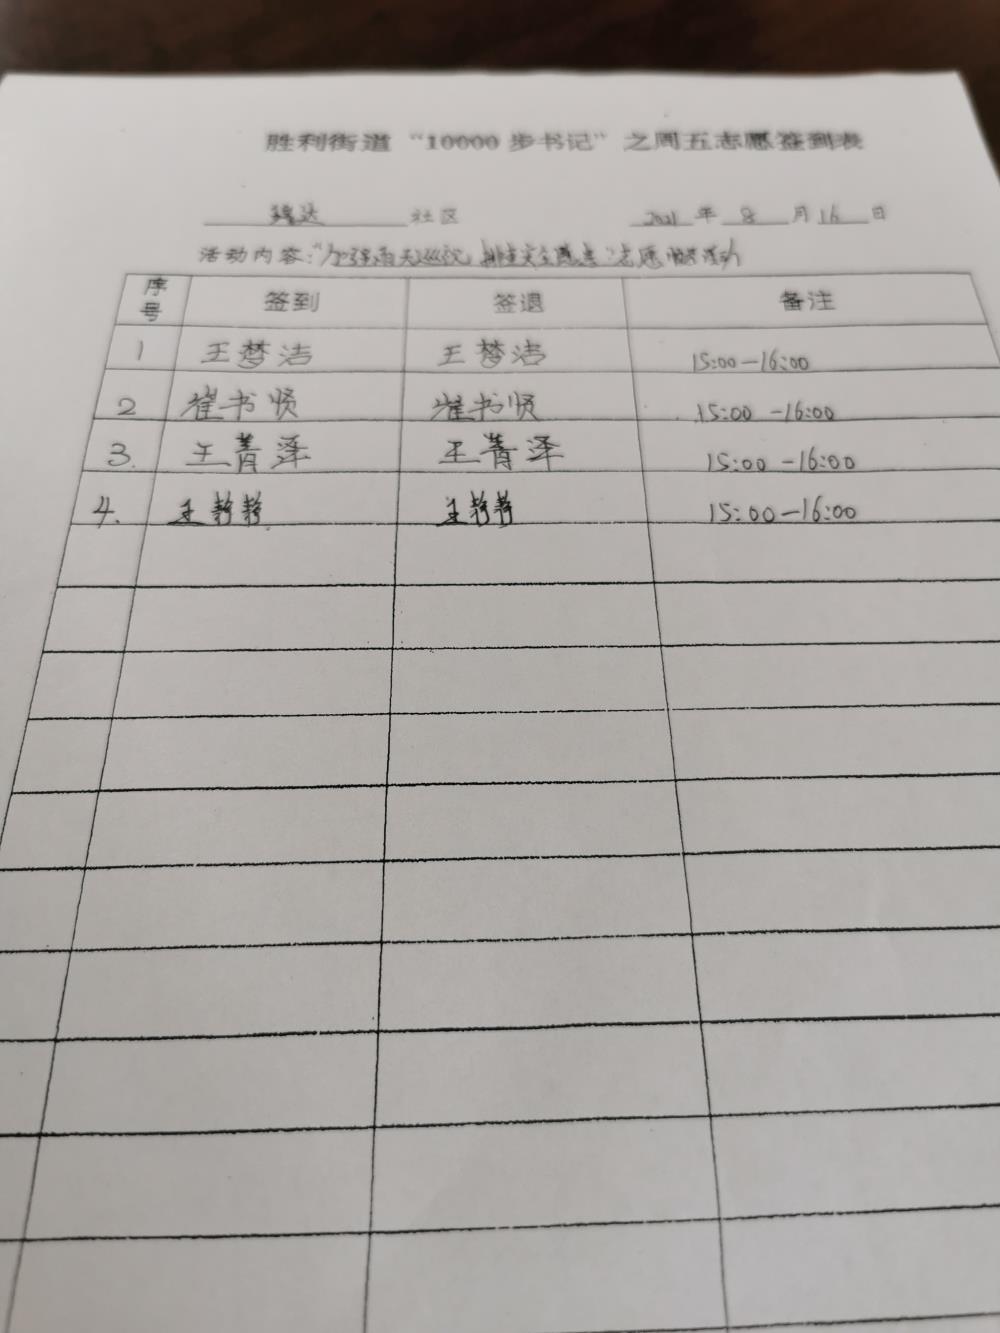 胜利街道“10000步书记”之周五志愿签到表
社区 2021年8月16日
活动内容:“加强雨天巡视，排查安全隐患”志愿服务活动
序号 签到 签退 备注
1 王梦洁 王梦洁 15:00-16:00
2 崔书贤 崔书贤 15:00-16:00
3. 王菁泽 王菁泽 15:00-16:00
4. 王静静 王静静 15:00-16:00